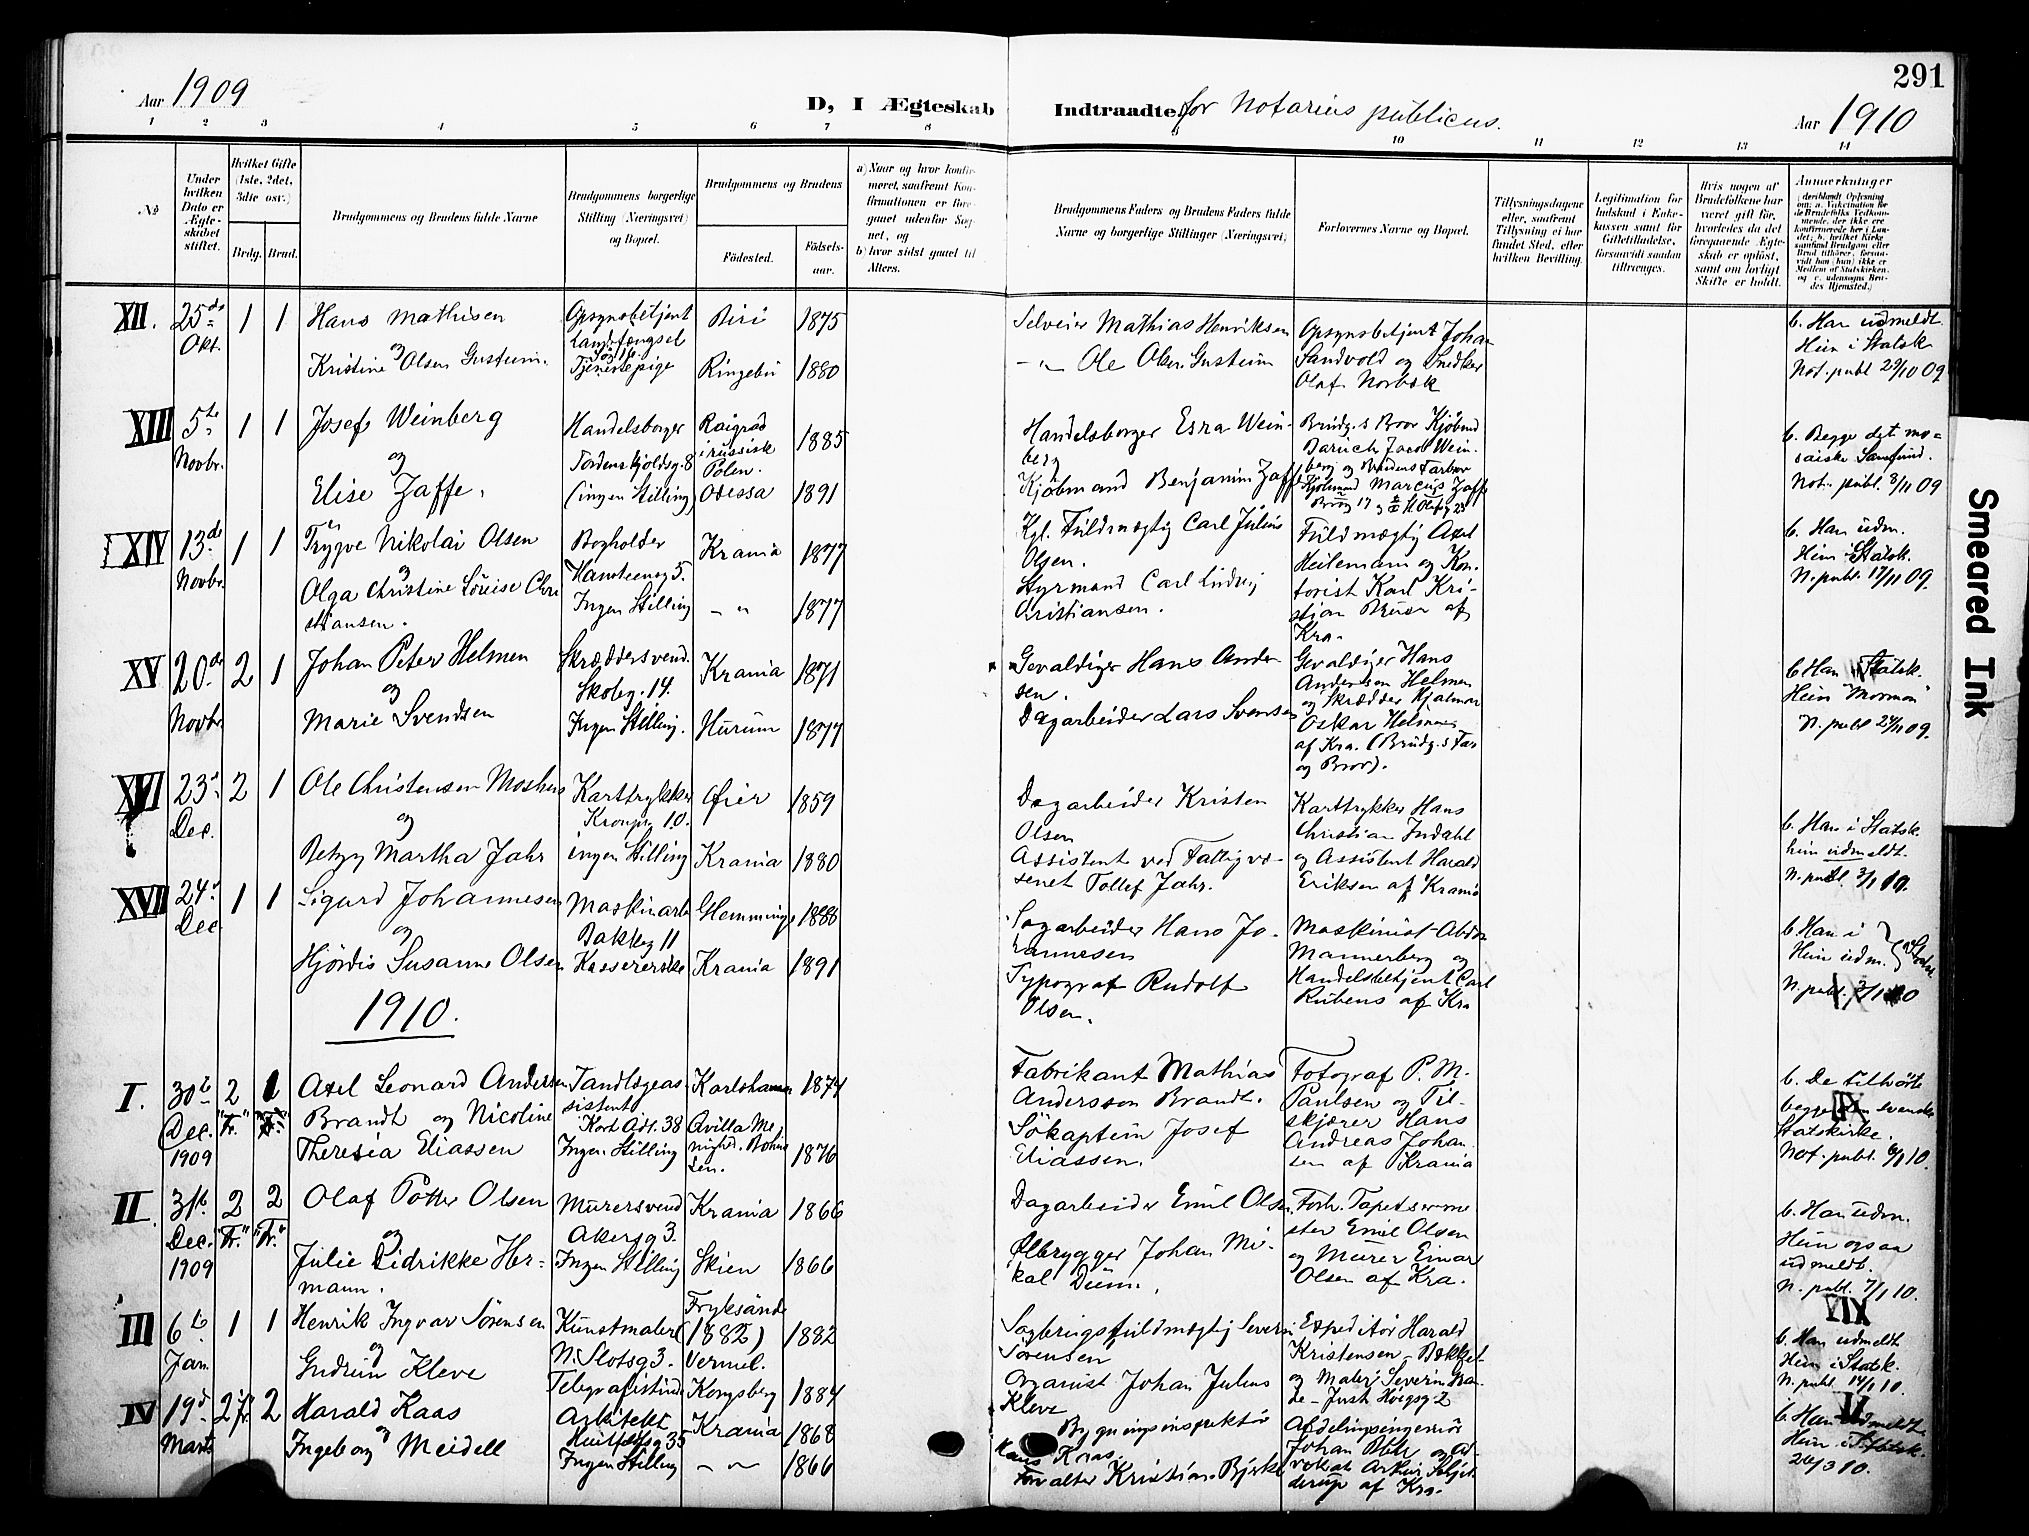 291
Aar 1909
D, I Ægteskab
Indtraadte for Notarius publicus.
Aar 1910
1 2 3 4 5 6 7 8
10 11 12 13 14
No.
Under hvilken Dato er Ægteskabet stiftet.
Hvilket Gifte (1ste, 2det, 3die osv.)
Brdg. Brud.
Brudgommens og Brudens fulde Navne
Brudgommens borgerlige Stilling (Næringsvei) og Bopæl.
Brudgommens og Brudens
Fødested.
Fødselsaar.
a) Naar og hvor konfirmeret, saafremt Konfirmationen er foregaaet udenfor Sognet, og
b) hvor sidst gaaet til Alters.
Brudgommens Faders og Brudens Faders fulde Navne og borgerlige Stillinger (Næringsvei)
Forlovernes Navne og Bopæl.
Tillysningsdagene eller, saafremt Tillysning ei har fundet Sted, efter hvilken Bevilling.
Legitimation for Indskud i Enkekassen samt for Giftetilladelse, forsaavidt saadan tiltrænges.
Hvis nogen af Brudefolkene har været gift før, hvorledes da det foregaaende Ægteskab er opløst, samt om lovligt Skifte er holdt.
Anmerkninger
XII. 25de Okt. 1 1
Hans Mathisen
og
Kristine Olsen Gusteim.
Opsynsbetjent
Landsfængsel
Tjenestepige
Biri 1875
Ringebu 1880
Selveier Mathias Henriksen
-"- Ole Olsen Gusteim
Opsynsbetjent Johan
Sandvold og Snedker
Olaf Norbak
b. Han udmeldt
Hun i Statsk
Not. publ 29/10 09
XIII 5te Novbr. 1 1
Josef Weinberg
og
Elise Jaffe.
Handelsborger
Tordenskjoldsg. 8
(ingen Stilling)
Raigrad
i russisk
Polen. 1885
Odessa 1891
Handelsborger Esra Weinberg
Kjøbmand Benjamin Jaffe
Brudg.s Bror Kjøbmd
Baruch Jacob Weinberg
og Brudens Farbror
Kjøbmand Marcus Jaffe
b. Begge det mosaiske
Samfund.
Not. publ. 8/11 09
XIV 13de Novbr. 1 1
Trygve Nikolai Olsen
og
Olga Christine Louise Christiansen.
Bogholder
Hansteensg 5.
Ingen Stilling
Krania 1877
-"- 1877
Kgl. Fuldmægtig Carl Julius
Olsen.
Styrmand Carl Ludvig
Cristiansen.
Fuldmægtig Axel
Heilemann og Kontorist
Karl Kristian
Bruun af
Kra.
b. Han udm.
Hun i Statsk.
N. publ. 17/11 09.
XV 20de Novbr 2 1
Johan Peter Helmen
og
Marie Svendsen
Skræddersvend.
Skobg. 14.
Ingen Stilling.
Krania 1871
Hurum 1877
Gevaldiger Hans Andersen.
Dagarbeider Lars Svensen
Gevaldiger Hans
Andersen Helmen
og Skrædder Hjalmar
Oskar Helmen
af Kra. (Brudg.s Far
og Bror).
b Han i Statsk.
Hun "Mormon"
N. publ 24/11 09.
XVI 23de Dec. 2 1
Ole Christensen Moshus
og
Betzy Martha Jahr
Karttrykker
Kronpr. 10.
ingen Stilling
Øier 1859
Krania 1880
Dagarbeider Kristen
Olsen
Assistent ved Fattigvæsenet
Tollef Jahr.
Karttrykker Hans
Christian Indahl
og Assistent Harald
Eriksen af Krania
b. Han i Statsk.
hun udmeldt.
N. publ. 3/1 10.
XVII 24de Dec 1 1
Sigurd Johannesen
og
Hjørdis Susanne Olsen
Maskinarb
Bakkeg 11
Kassererske
Glemminge 1888
Krania 1891
Dagarbeider Hans Johannesen
Typograf Rudolf
Olsen.
Maskinist
Mannerberg og
Handelsbetjent Carl
Rubens af Kra
b. Han i
Hun udm. } Statsk.
N. publ. 3/1 10
1910.
I. 30te Dec. 1909 2 "Fr." 1
Axel Leonard Andersen
Brandt og Nicoline
Theresia Eliassen
Tandlægeassistent
Karl Ads. 38
Ingen Stilling
Karlshamn 1874
Qvilla Menighed. Bohuslen. 1876
Fabrikant Mathias
Andersson Brandt.
Søkaptein Josef
Eliassen.
Fotograf P. M.
Paulsen og Tilskjærer
Hans
Andreas Johansen
af Krania
b. De tilhørte
begge den svenske
Statskirke.
Not. publ. 6/1 10.
II. 31te Dec. 1909 2 "Fr." 2 "Fr."
Olaf Potter Olsen
og
Julie Didrikke Hermann.
Murersvend
Akersg 3.
Ingen Stilling
Krania 1866
Skien 1866
Dagarbeider Emil Olsen
Ølbrygger Johan Mikal
Dum.
Forh. Tapetserermester
Emil Olsen
og Murer Einar
Olsen af Kra.
b. Han udm.
Hun ogsaa
udmeldt.
N. publ. 7/1 10.
III 6te Jan. 1 1
Henrik Ingvar Sørensen
og
Gudrun Kleve
Kunstmaler
N. Slotsg 3.
Telegrafistinde
Fryksände
(1882)
Vermel. 1882
Kongsberg 1884
Sagbrugsfuldmægtig Severin
Sørensen
Organist Johan Julius
Kleve
Expeditør Harald
Kristensen
og Maler Severin Grande
b. Han udmeldt
Hun i Statsk.
N. publ. 14/1 10.
IV 19de Marts 2 fr 2
Harald Kaas
og
Ingeborg Meidell
Arkitekt
Huitfeldtsg 35
Ingen Stilling
Krania 1868
-"- 1866
Bygningsinspektør
Hans Kaas.
Forvalter Kristian Bjerke
Afdelingsingeniør
Johan og Advokat
af Kra.
b. Han udmeldt
Hun i Statsk.
26/3 10.
Smeared Ink